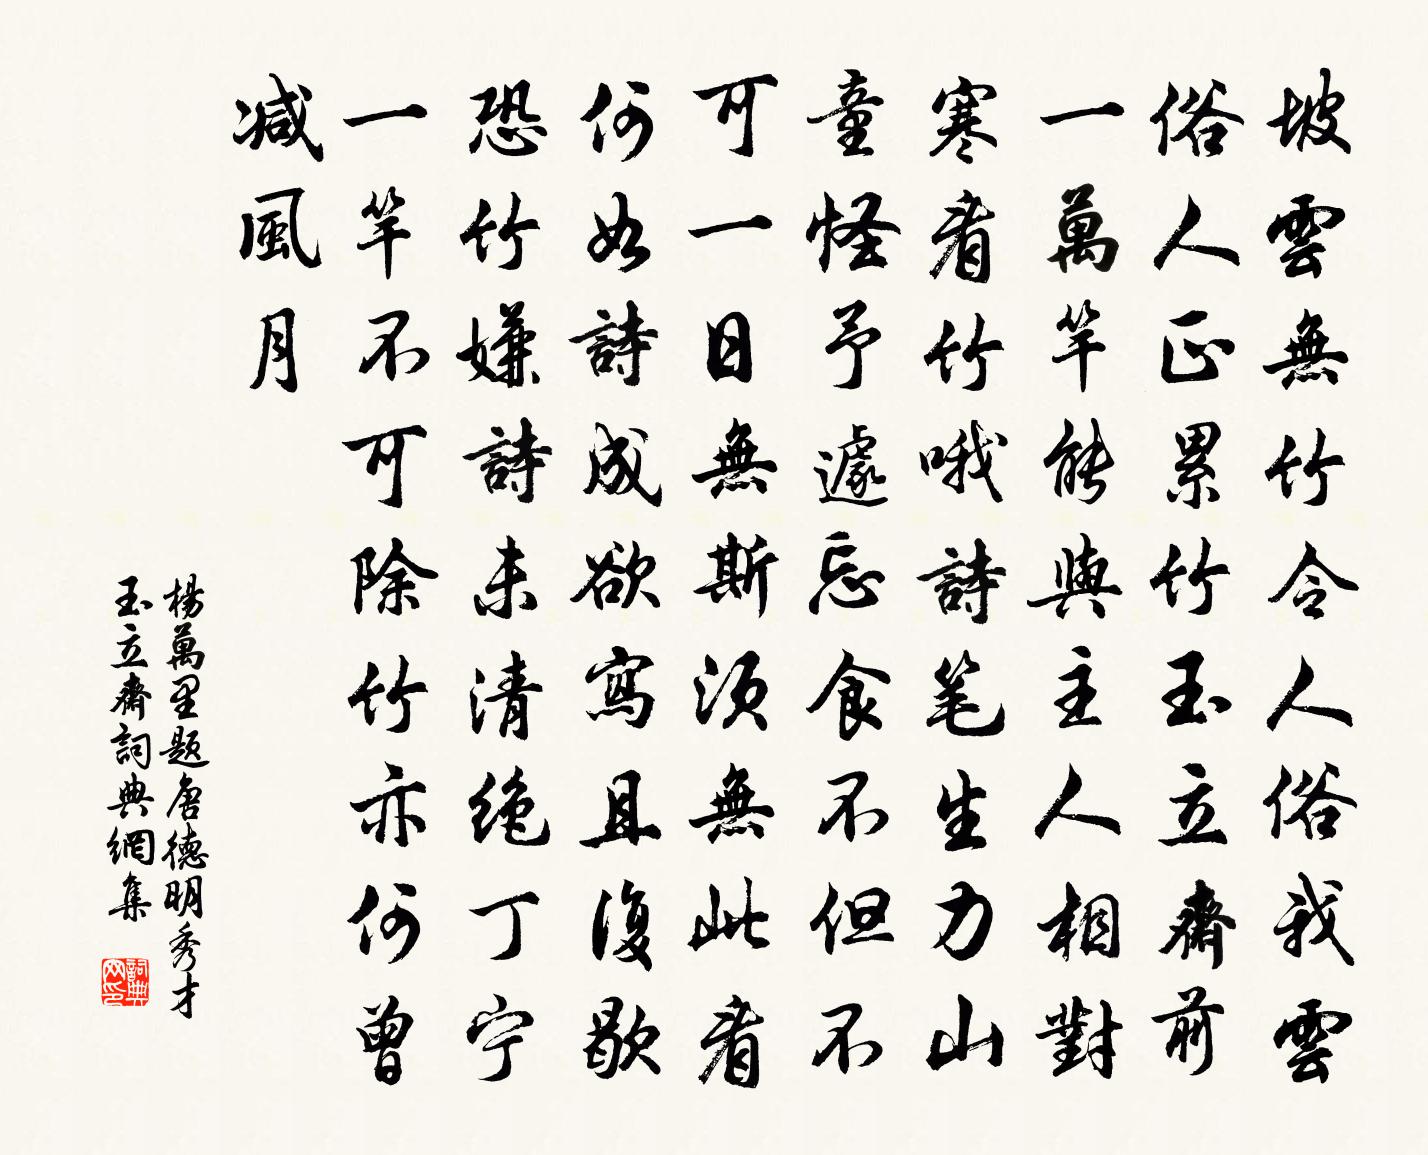 坡雲無竹令人俗我雲
俗人正累竹玉立齋前
一萬竿能與主人相對
寒看竹哦詩笔生力山
童怪予遽忘食不但不
可一日無斯須無此看
何如詩成欲寫且復歇
恐竹嫌詩未清绝丁宁
一竿不可除竹亦何曾
减風月
楊萬里題唐德明秀才
玉立齋詞典網集
詞典
网印